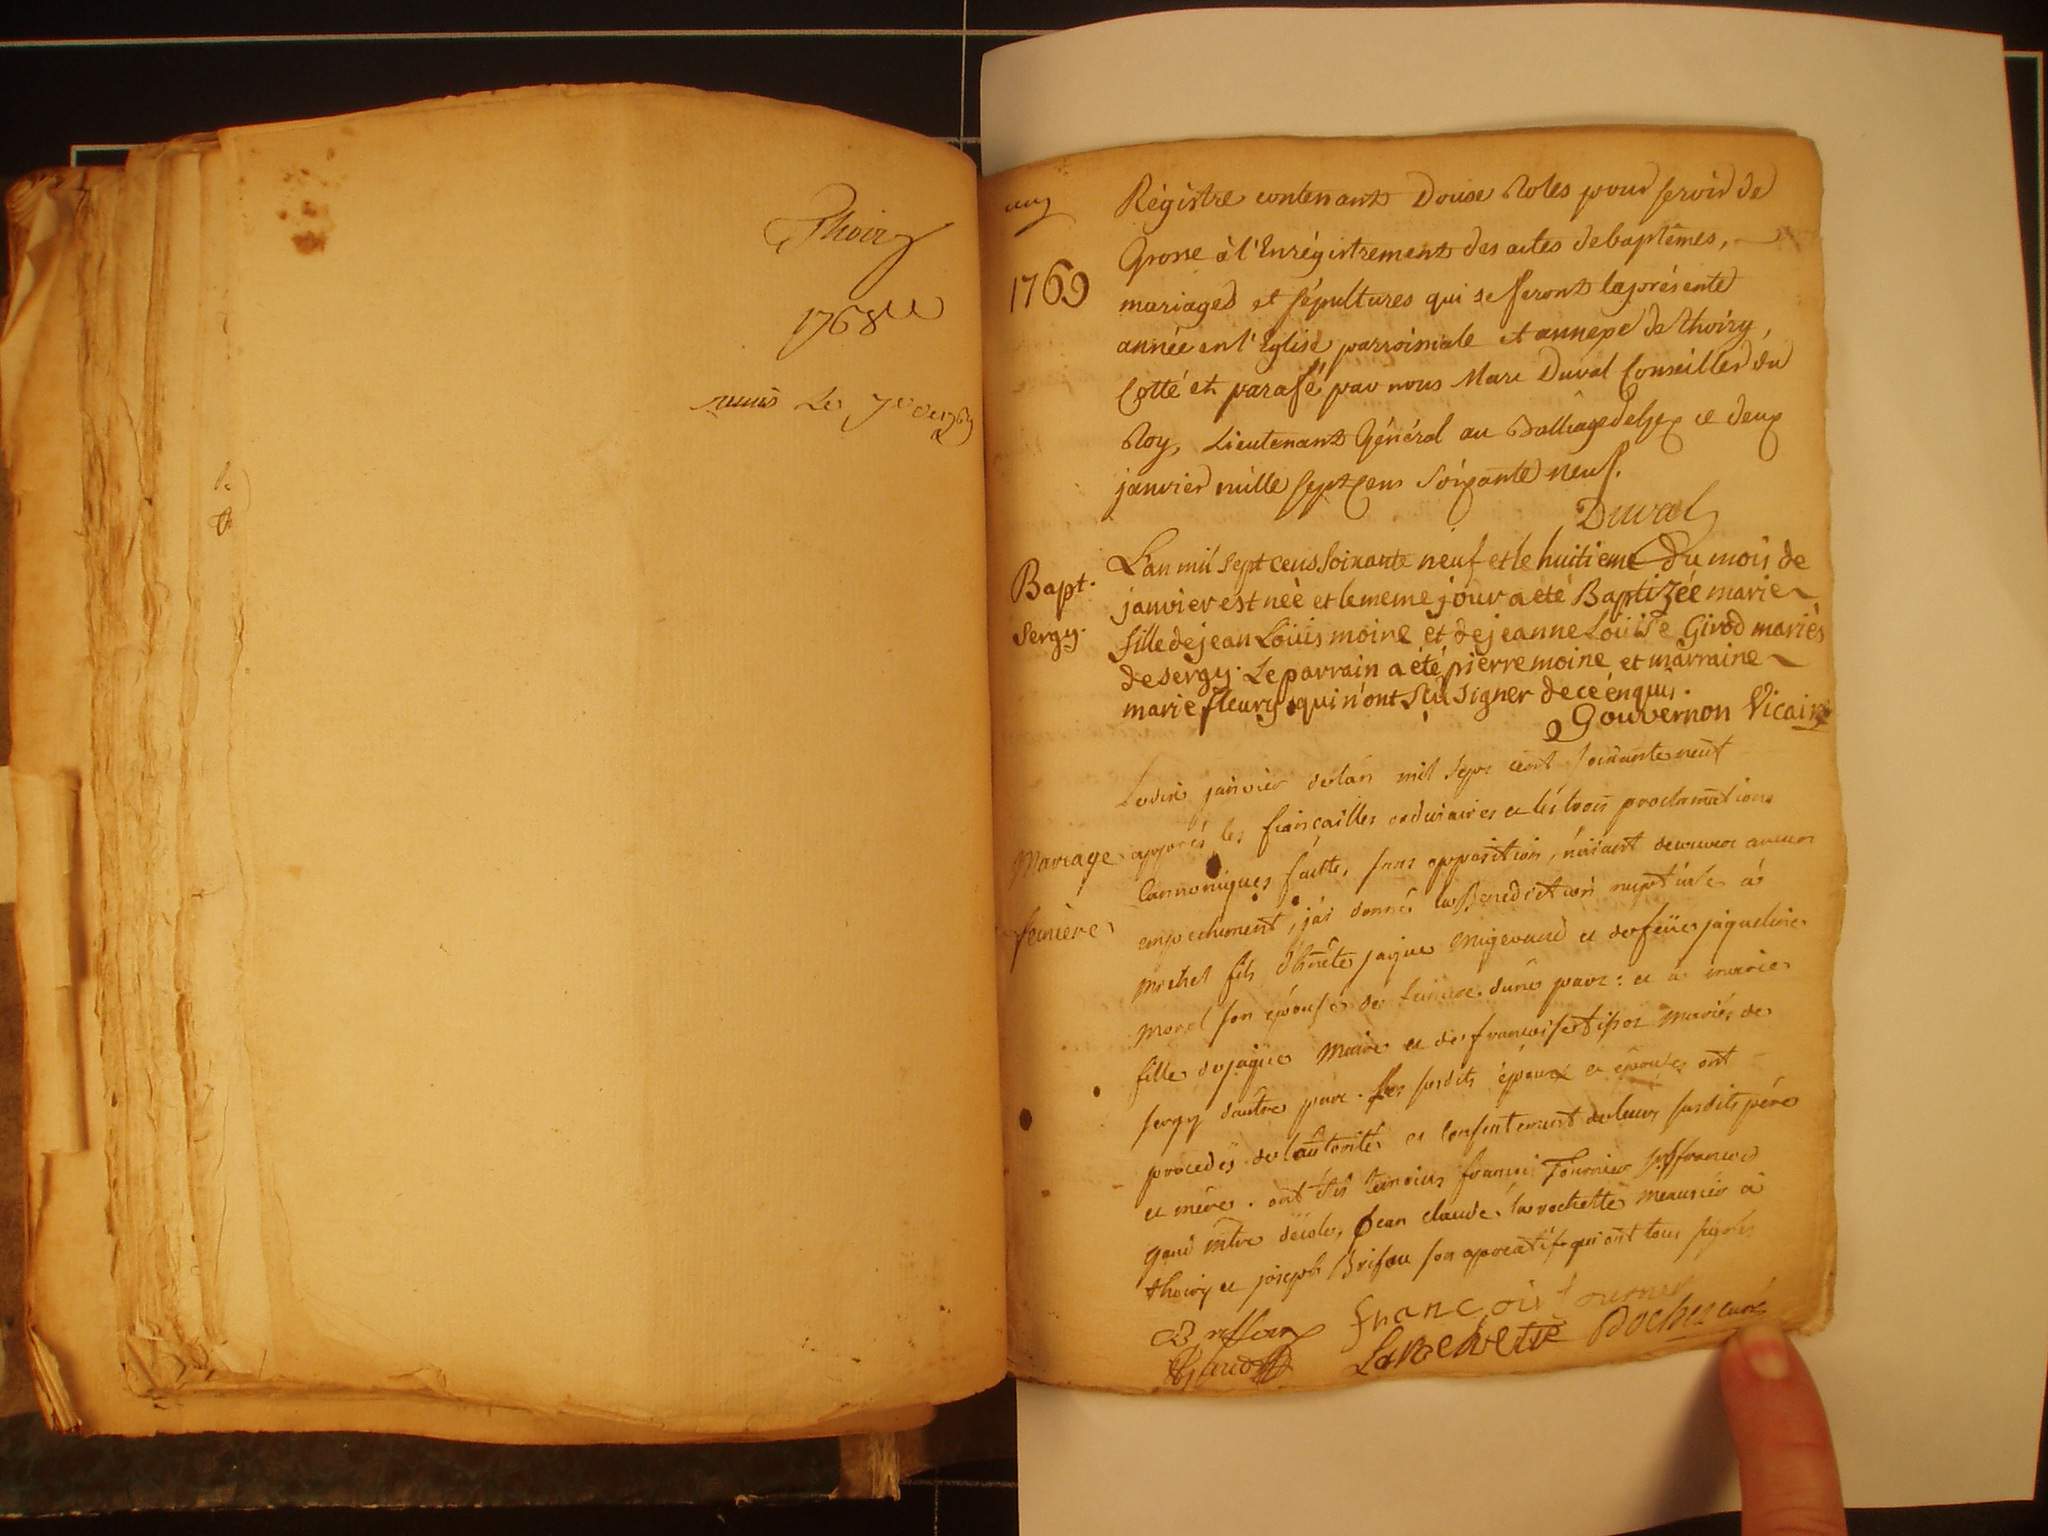 Thoiry
1768
remis Le 7e
1769
Régistre contenant Douse Roles pour servir de
Grosse à l'Enrégistrement des actes de baptêmes,
mariages et sépultures qui se feront la présente
année en l'Eglise parroissiale et annexe de thoiry,
Cotté et parafé par nous Marc Duval Conseiller du
Roy, Lieutenant Général au Balliage de Gex ce deux
janvier mille sept cens soixante neuf.
Duval
Bapt.
Sergy.
L'an mil sept cens soixante neuf et le huitieme du mois de
janvier est neè et le meme jour a été Baptizée marie
fille de jean Loüis moine et de jeanne Loüise Girod mariés
de sergy. Le parrain a été pierre moine et marraine
marie fleury qui n'ont sçu signer de ce énquis.
Gouvernon Vicaire
Mariage
feniere
janvier de lan mil sept cent soixante neuf
apprés les fiançailles ordinaires et les trois proclamations
cannoniques faitte, sans opposition, n'aiant decouver aucun
empechement, j'ai donné la Benediction nuptiale à
michel fils d'hnête jaque migerand et de feüe jaqueline
morel son épouse de feniere d'une part: et à marie
fille de jaque moine et de françoise tissot mariés de
sergy d'autre part. Les susdits époux et épouse ont
procedés de l'autorité et consentement de leurs susdits pére
et mére. ont étés temoins françois Fournier, françois
gaud mtre décole, jean claude larochette meunier à
thoiry et joseph Brifou son qui ont tous signés
françois fournier
Larochette Bochez curé